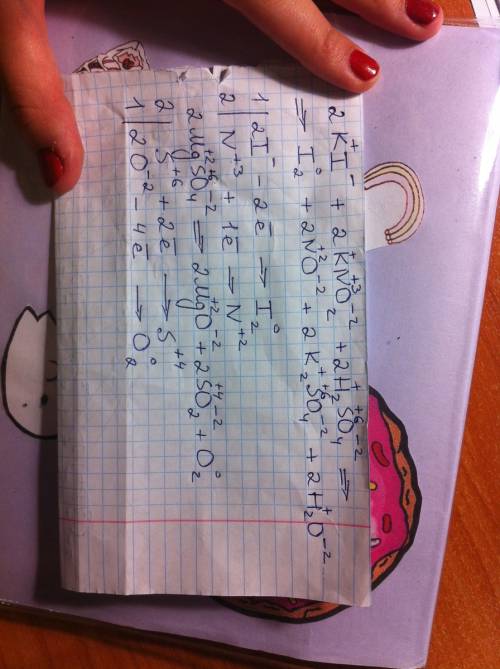 2K⁺I⁻ + 2K⁺N⁺³O₂⁻² + 2H₂⁺S⁺⁶O₄⁻² ⇒
⇒ I₂⁰ + 2N⁺²O⁻² + 2K₂⁺S⁺⁶O₄⁻² + 2H₂⁺O⁻²
1 | 2I⁻ - 2ē → I₂⁰
2 | N⁺³ + 1ē → N⁺²
2Mg⁺²S⁺⁶O₄⁻² ⇒ 2Mg⁺²O⁻² + 2S⁺⁴O₂⁻² + O₂⁰
2 | S⁺⁶ + 2ē → S⁺⁴
1 | 2O⁻² - 4ē → O₂⁰